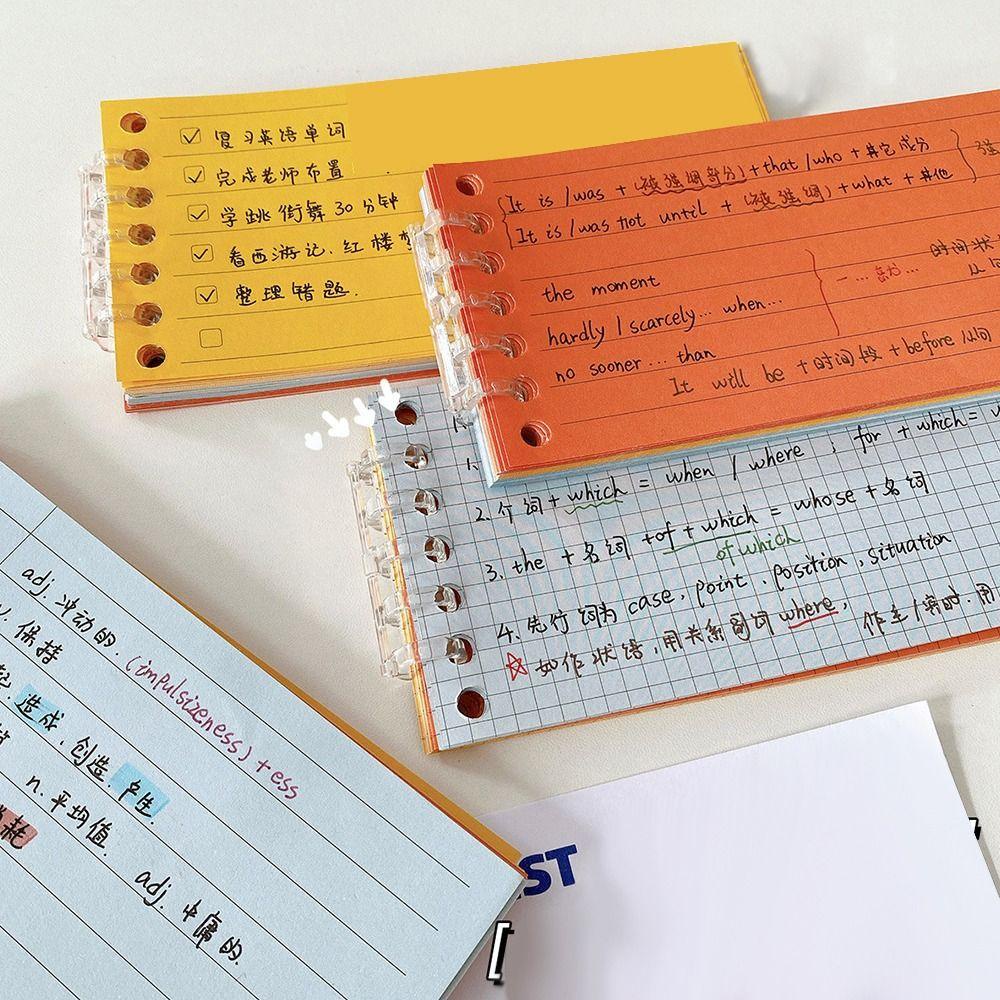 复习英语单词
完成老师布置
学跳街舞30分钟
看西游记、红楼梦
整理错题.
It is /was + (被强调部分) + that /who + 其它成分
It is /was not until + (被强调) + what + 其他
强
the moment
hardly / scarcely... when...
no sooner ... than
一 ... 就 ...
时间状
从句
It will be + 时间段 + before 从句
2. 介词 + which = when / where ; for + which =
3. the + 名词 + of + which = whose + 名词
of which
4. 先行词为 case, point, position, situation
如作状语, 用关系副词 where, 作主/宾时. 用
adj. 冲动的. (impulsizeness) + ess
v. 保持
造成. 创造. 产生.
n. 平均值. adj. 中庸的.
耗
ST
[